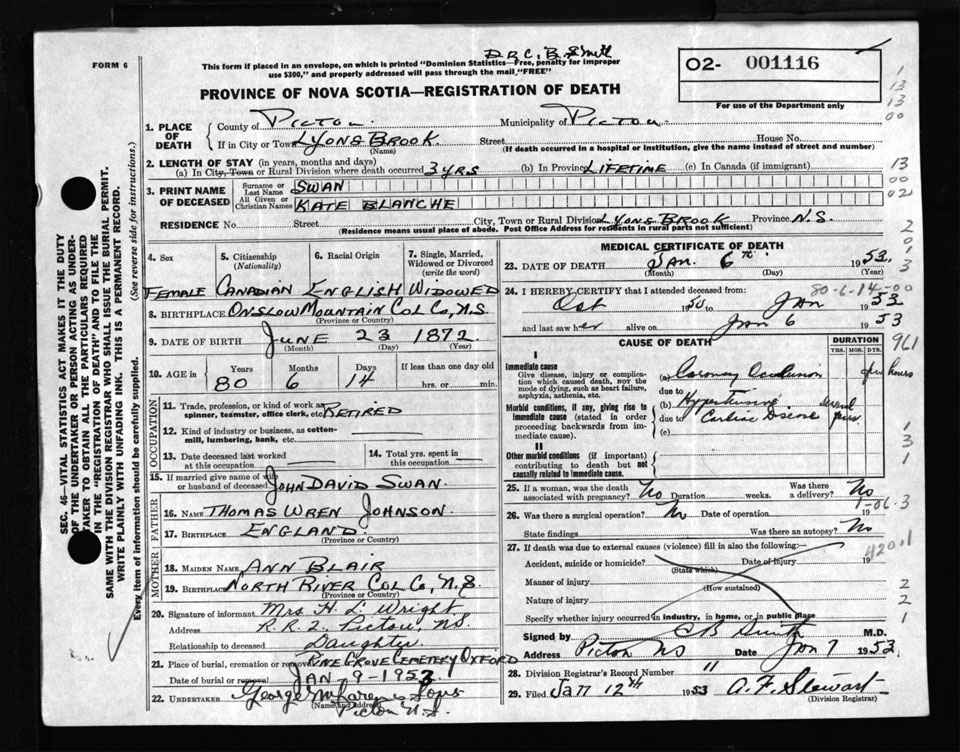 D R C. B. Smith
FORM 6
This form if placed in an envelope, on which is printed "Dominion Statistics—Free, penalty for improper
use $300," and properly addressed will pass through the mail, "FREE"
02- 001116
PROVINCE OF NOVA SCOTIA—REGISTRATION OF DEATH
For use of the Department only
1. PLACE OF DEATH
County of Pictou Municipality of Pictou
If in City or Town LYONS BROOK. Street House No.
(Name) (If death occurred in a hospital or institution, give the name instead of street and number)
2. LENGTH OF STAY (in years, months and days)
(a) In City, Town or Rural Division where death occurred 3 YRS (b) In Province LIFETIME (c) In Canada (if immigrant)
3. PRINT NAME OF DECEASED
Surname or Last Name SWAN
All Given or Christian Names KATE BLANCHE
RESIDENCE No. Street City, Town or Rural Division LYONS BROOK Province N.S.
(Residence means usual place of abode. Post Office Address for residents in rural parts not sufficient)
4. Sex
5. Citizenship (Nationality)
6. Racial Origin
7. Single, Married, Widowed or Divorced (write the word)
FEMALE CANADIAN ENGLISH WIDOWED
8. BIRTHPLACE ONSLOW MOUNTAIN COL CO, N.S.
(Province or Country)
9. DATE OF BIRTH JUNE 23 1872
(Month) (Day) (Year)
10. AGE
Years Months Days If less than one day old
80 6 14 hrs. or min.
OCCUPATION
11. Trade, profession, or kind of work as
spinner, teamster, office clerk, etc. RETIRED
12. Kind of industry or business, as cotton-
mill, lumbering, bank, etc.
13. Date deceased last worked at this occupation
14. Total yrs. spent in this occupation
15. If married give name of wife
or husband of deceased JOHN DAVID SWAN.
FATHER
16. NAME THOMAS WREN JOHNSON.
17. BIRTHPLACE ENGLAND
(Province or Country)
MOTHER
18. MAIDEN NAME ANN BLAIR
19. BIRTHPLACE NORTH RIVER COL CO, N.S.
(Province or Country)
20. Signature of informant Mrs H. L. Wright
Address R.R. 2. Pictou, NS.
Relationship to deceased Daughter
21. Place of burial, cremation or removal PINE GROVE CEMETERY OXFORD
Date of burial or removal JAN 9-1953
22. UNDERTAKER George & Sons
(Name and address)
Pictou N.S.
MEDICAL CERTIFICATE OF DEATH
23. DATE OF DEATH Jan. 6th 1953.
(Month) (Day) (Year)
80-6-14-00
24. I HEREBY CERTIFY that I attended deceased from:
Oct 1950 to Jan 1953
and last saw her alive on Jan 6 1953
CAUSE OF DEATH
DURATION
YRS. MOS. DYS.
961
I
Immediate cause
Give disease, injury or complication which caused death, not the mode of dying, such as heart failure, asphyxia, asthenia, etc.
(a) Coronary Occlusion few hours
due to
Morbid conditions, if any, giving rise to immediate cause (stated in order proceeding backwards from immediate cause).
(b) Hypertensive several
due to Cardiac Disease years
(c)
II
Other morbid conditions (if important) contributing to death but not causally related to immediate cause.
25. If a woman, was the death associated with pregnancy? No Duration weeks. Was there a delivery? No
26. Was there a surgical operation? No Date of operation 19
State findings Was there an autopsy? No
27. If death was due to external causes (violence) fill in also the following:—
Accident, suicide or homicide? Date of injury 19
(State which)
420.1
Manner of injury
(How sustained)
Nature of injury
Specify whether injury occurred in industry, in home, or in public place
Signed by C B Smith M.D.
Address Pictou NS Date Jan 7 1953.
28. Division Registrar's Record Number 11
29. Filed Jan 12th 1953 A. F. Stewart
(Division Registrar)
SEC. 46—VITAL STATISTICS ACT MAKES IT THE DUTY
OF THE UNDERTAKER OR PERSON ACTING AS UNDER-
TAKER TO OBTAIN ALL THE PARTICULARS REQUIRED
IN THE "REGISTRATION OF DEATH" AND TO FILE THE
SAME WITH THE DIVISION REGISTRAR WHO SHALL ISSUE THE BURIAL PERMIT.
WRITE PLAINLY WITH UNFADING INK. THIS IS A PERMANENT RECORD.
Every item of information should be carefully supplied. (See reverse side for instructions.)
1
13
13
00
13
00
02
2
0
1
3
1
3
1
2
2
1